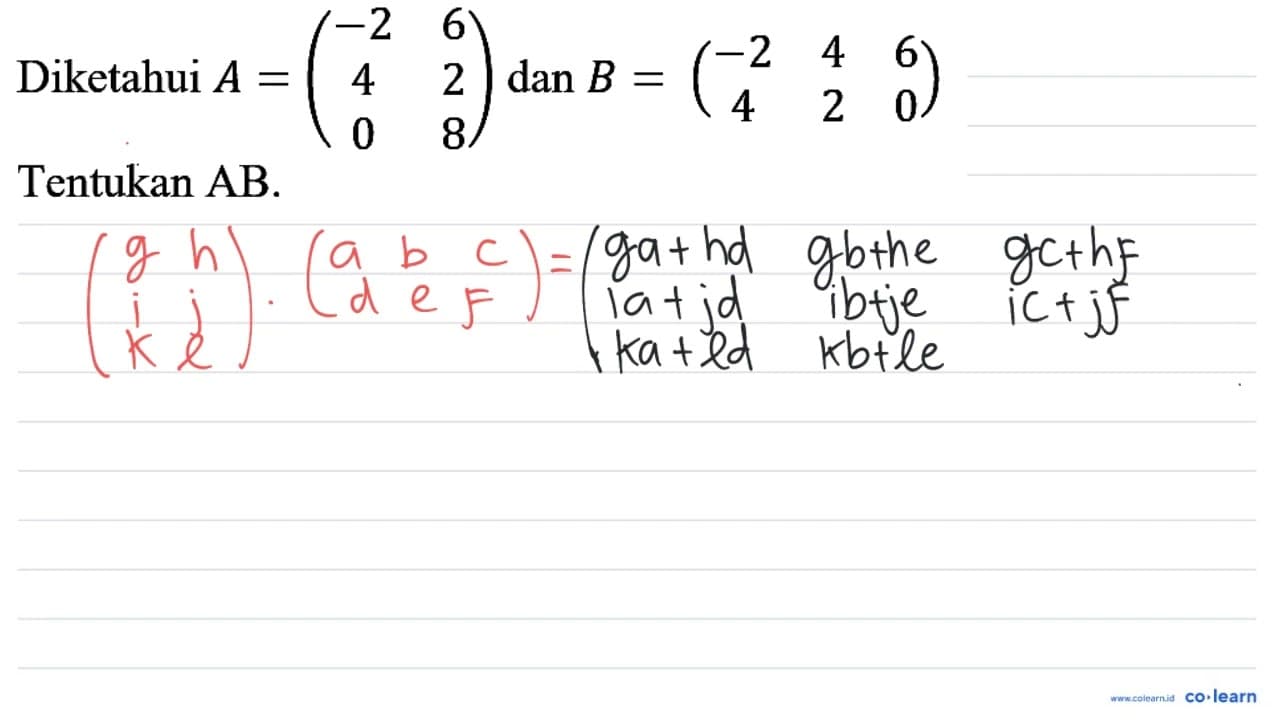 Diketahui A = (-2 6 4 2 0 8) dan B = (-2 4 6 4 2 0)
Tentukan AB.
(g h i j k l) . (a b c d e F) = (ga + hd gb+he gc+hF
ia + jd ib+je ic + jF
ka + ld kb+le
www.colearn.id co·learn